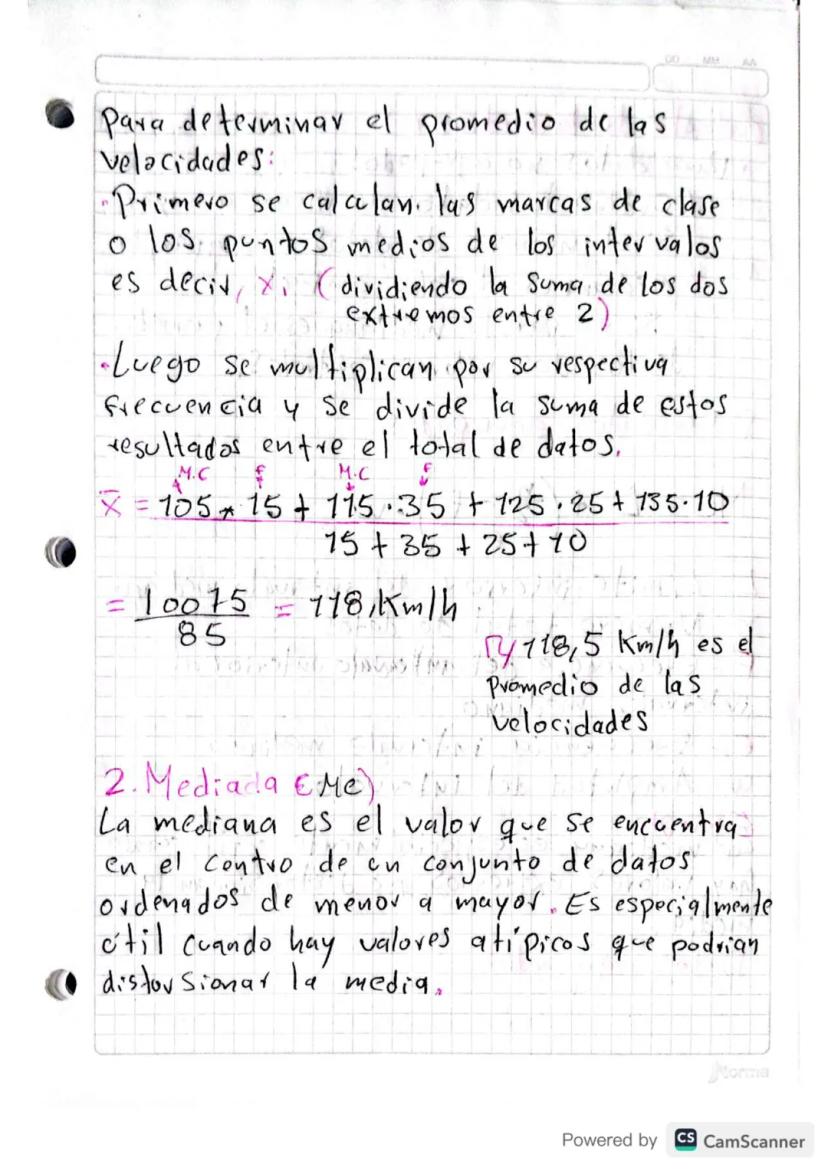 DD MM AA
Para determinar el promedio de las
velocidades:
• Primero se calculan las marcas de clase
o los puntos medios de los intervalos
es decir, Xi (dividiendo la suma de los dos
extremos entre 2)
• Luego se multiplican por su respectiva
frecuencia y se divide la suma de estos
resultados entre el total de datos.
M.C f M.C f
x̄ = 105 * 15 + 115 · 35 + 125 · 25 + 135 · 10
15 + 35 + 25 + 10
= 10075 = 118, Km/h
85
R/ 118,5 Km/h es el
promedio de las
velocidades
2. Mediada (Me)
La mediana es el valor que se encuentra
en el centro de un conjunto de datos
ordenados de menor a mayor. Es especialmente
útil cuando hay valores atípicos que podrían
distorsionar la media.
Norma
Powered by CS CamScanner